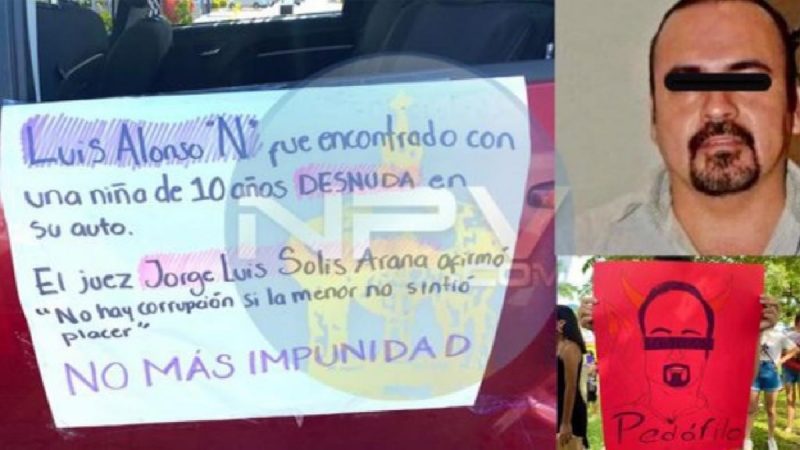 Luis Alonso "N" fue encontrado con
una niña de 10 años DESNUDA en
su auto.
El juez Jorge Luis Solis Arana afirmó
"No hay corrupción si la menor no sintió
placer"
NO MÁS IMPUNIDAD
NPV
.COM
Pedófilo